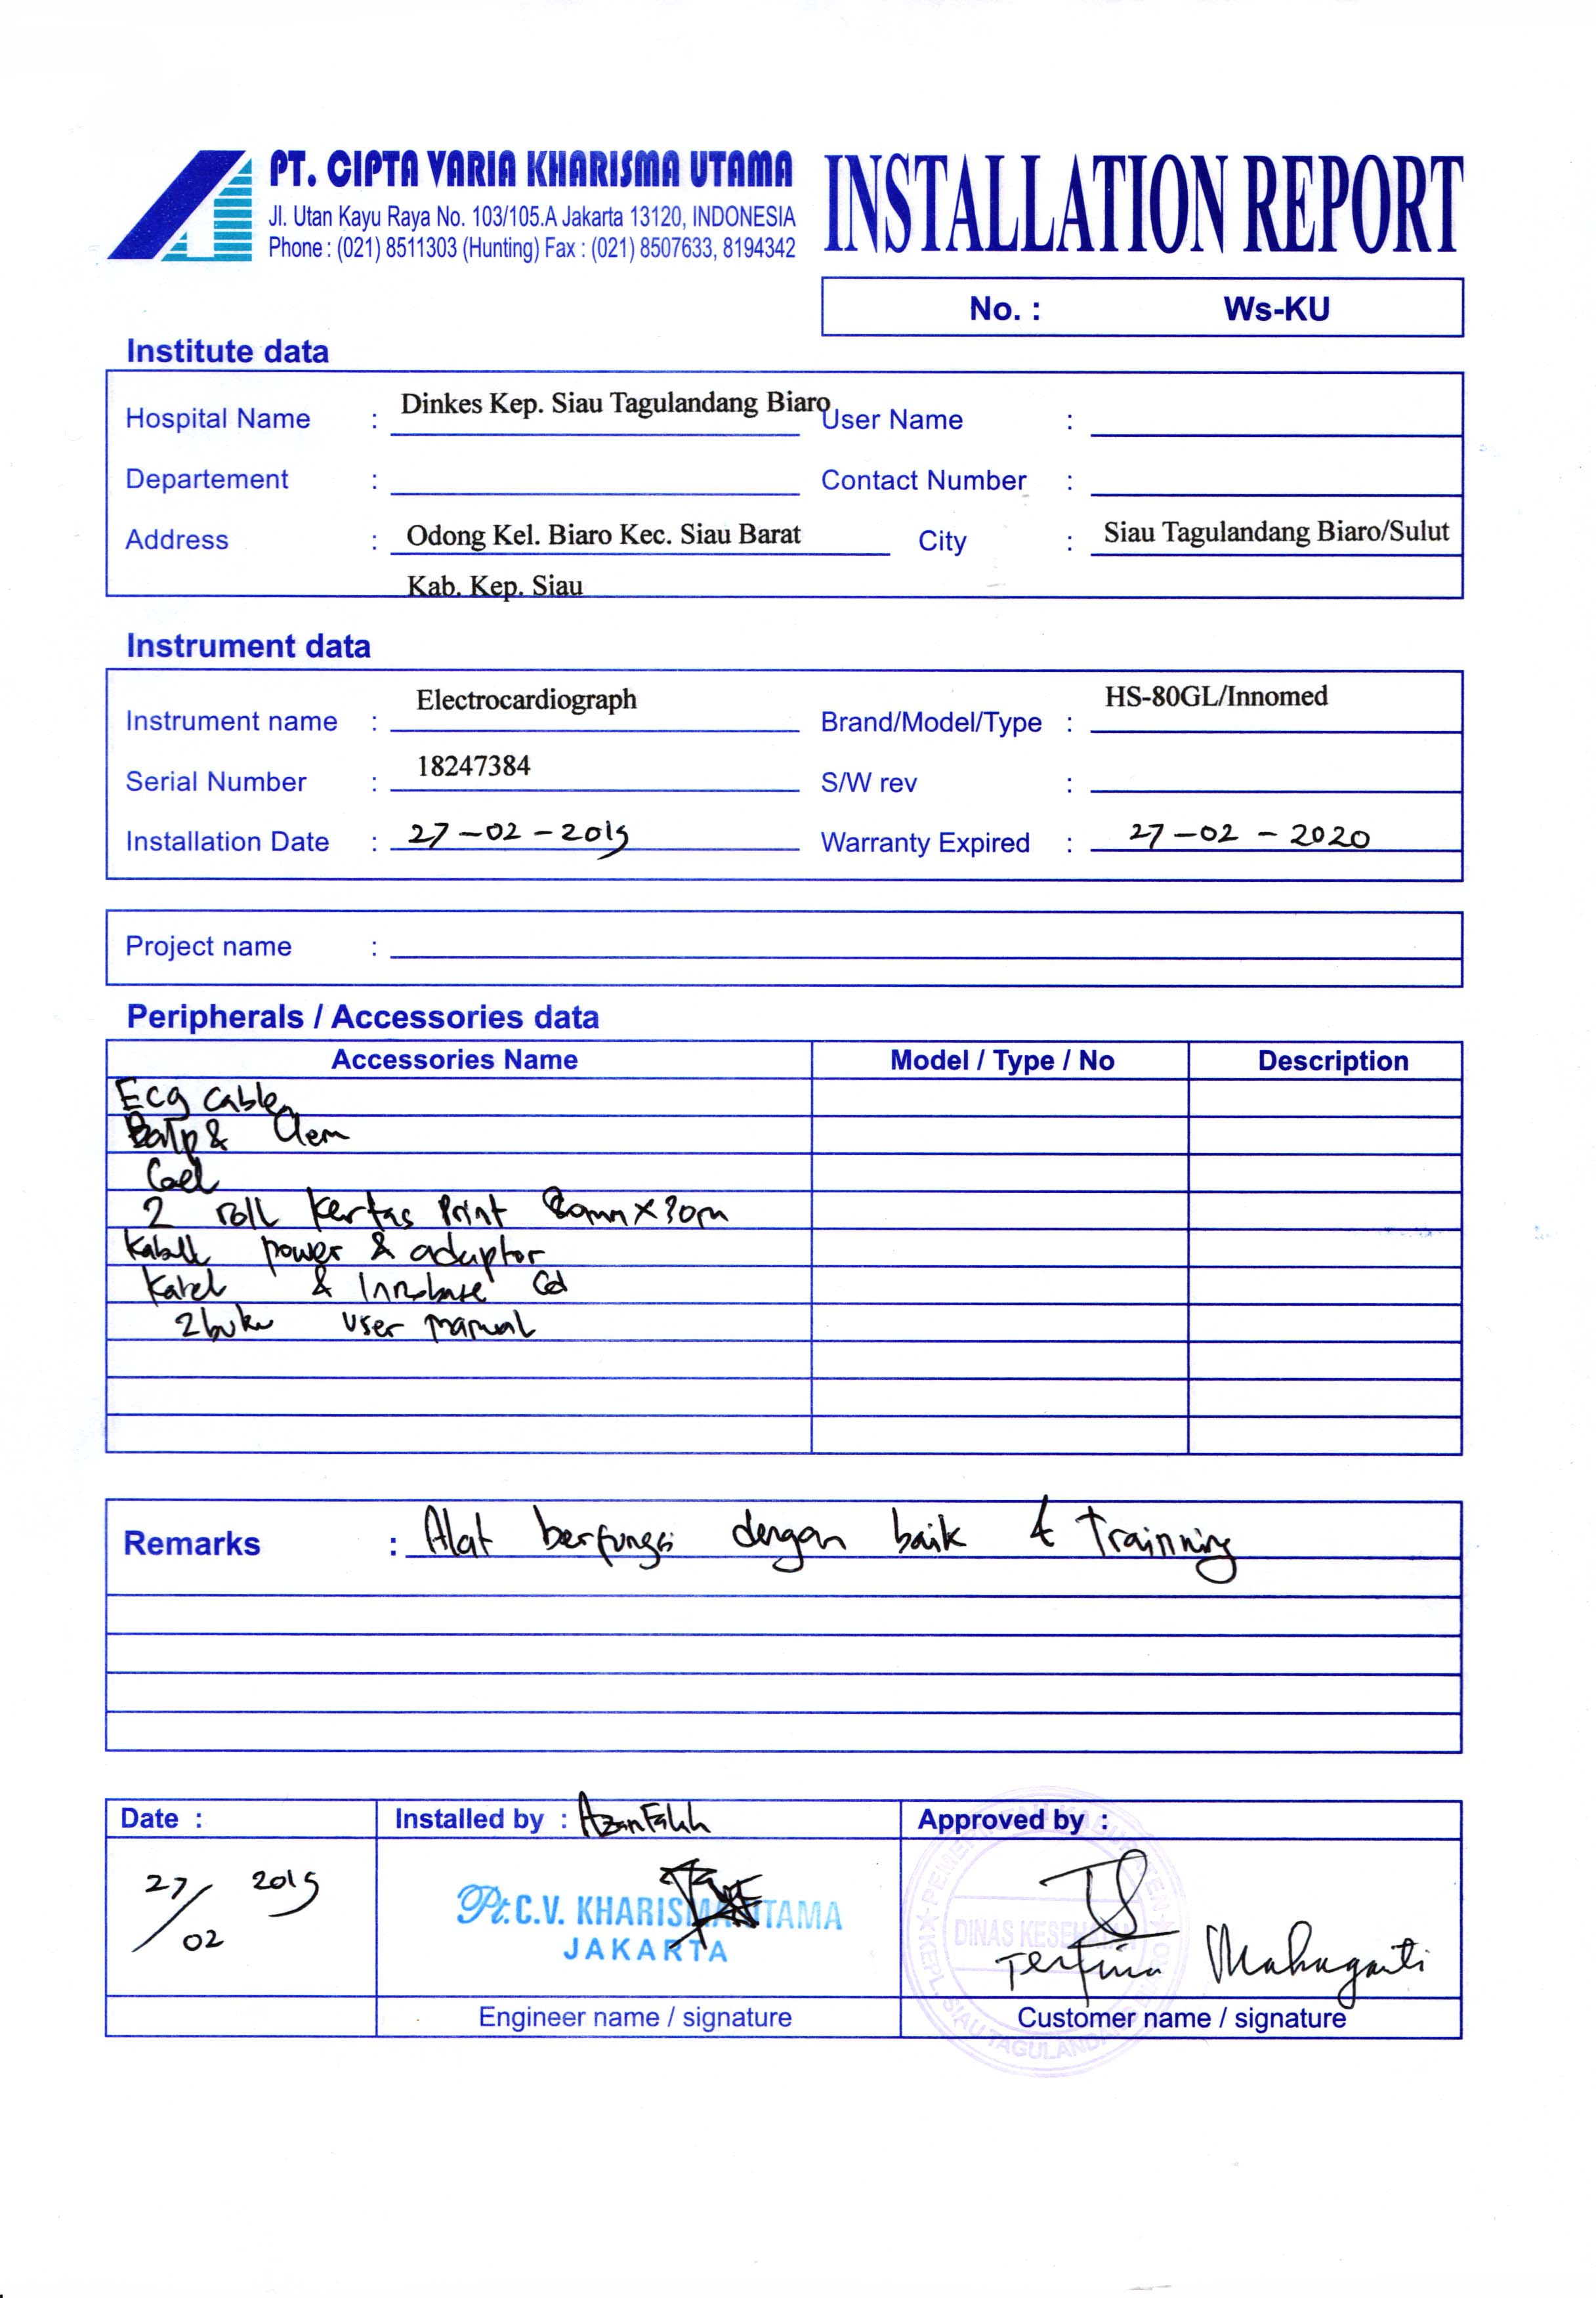 PT. CIPTA VARIA KHARISMA UTAMA
Jl. Utan Kayu Raya No. 103/105.A Jakarta 13120, INDONESIA
Phone : (021) 8511303 (Hunting) Fax : (021) 8507633, 8194342
INSTALLATION REPORT
No. : Ws-KU
Institute data
Hospital Name : Dinkes Kep. Siau Tagulandang Biaro User Name :
Departement : Contact Number :
Address : Odong Kel. Biaro Kec. Siau Barat City : Siau Tagulandang Biaro/Sulut
Kab. Kep. Siau
Instrument data
Instrument name : Electrocardiograph Brand/Model/Type : HS-80GL/Innomed
Serial Number : 18247384 S/W rev :
Installation Date : 27-02-2019 Warranty Expired : 27-02-2020
Project name :
Peripherals / Accessories data
Accessories Name Model / Type / No Description
Ecg cable
& Clem
Gel
2 roll kertas Print
power & adaptor
& Cd
2 buku user manual
Remarks : Alat berfungsi dengan baik & Trainning
Date : Installed by : Approved by :
27/02 2019
Pt. C.V. KHARISMA UTAMA
JAKARTA
PEMERINTAH KABUPATEN
DINAS KESEHATAN
KEPL. SIAU TAGULANDANG BIARO
Engineer name / signature Customer name / signature